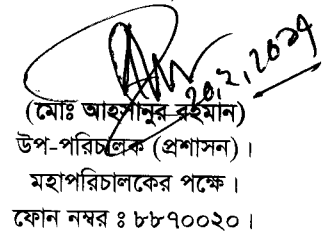 ২০,২,২০১৭
(মোঃ আহসানুর রহমান)
উপ-পরিচালক (প্রশাসন) ।
মহাপরিচালকের পক্ষে ।
ফোন নম্বর ঃ ৮৮৭০০২০ ।